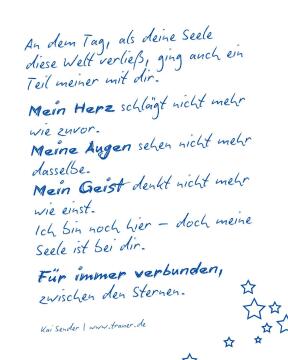 An dem Tag, als deine Seele
diese Welt verließ, ging auch ein
Teil meiner mit dir.
Mein Herz schlägt nicht mehr
wie zuvor.
Meine Augen sehen nicht mehr
dasselbe.
Mein Geist denkt nicht mehr
wie einst.
Ich bin noch hier – doch meine
Seele ist bei dir.
Für immer verbunden,
zwischen den Sternen.
Kai Sender | www.trauer.de